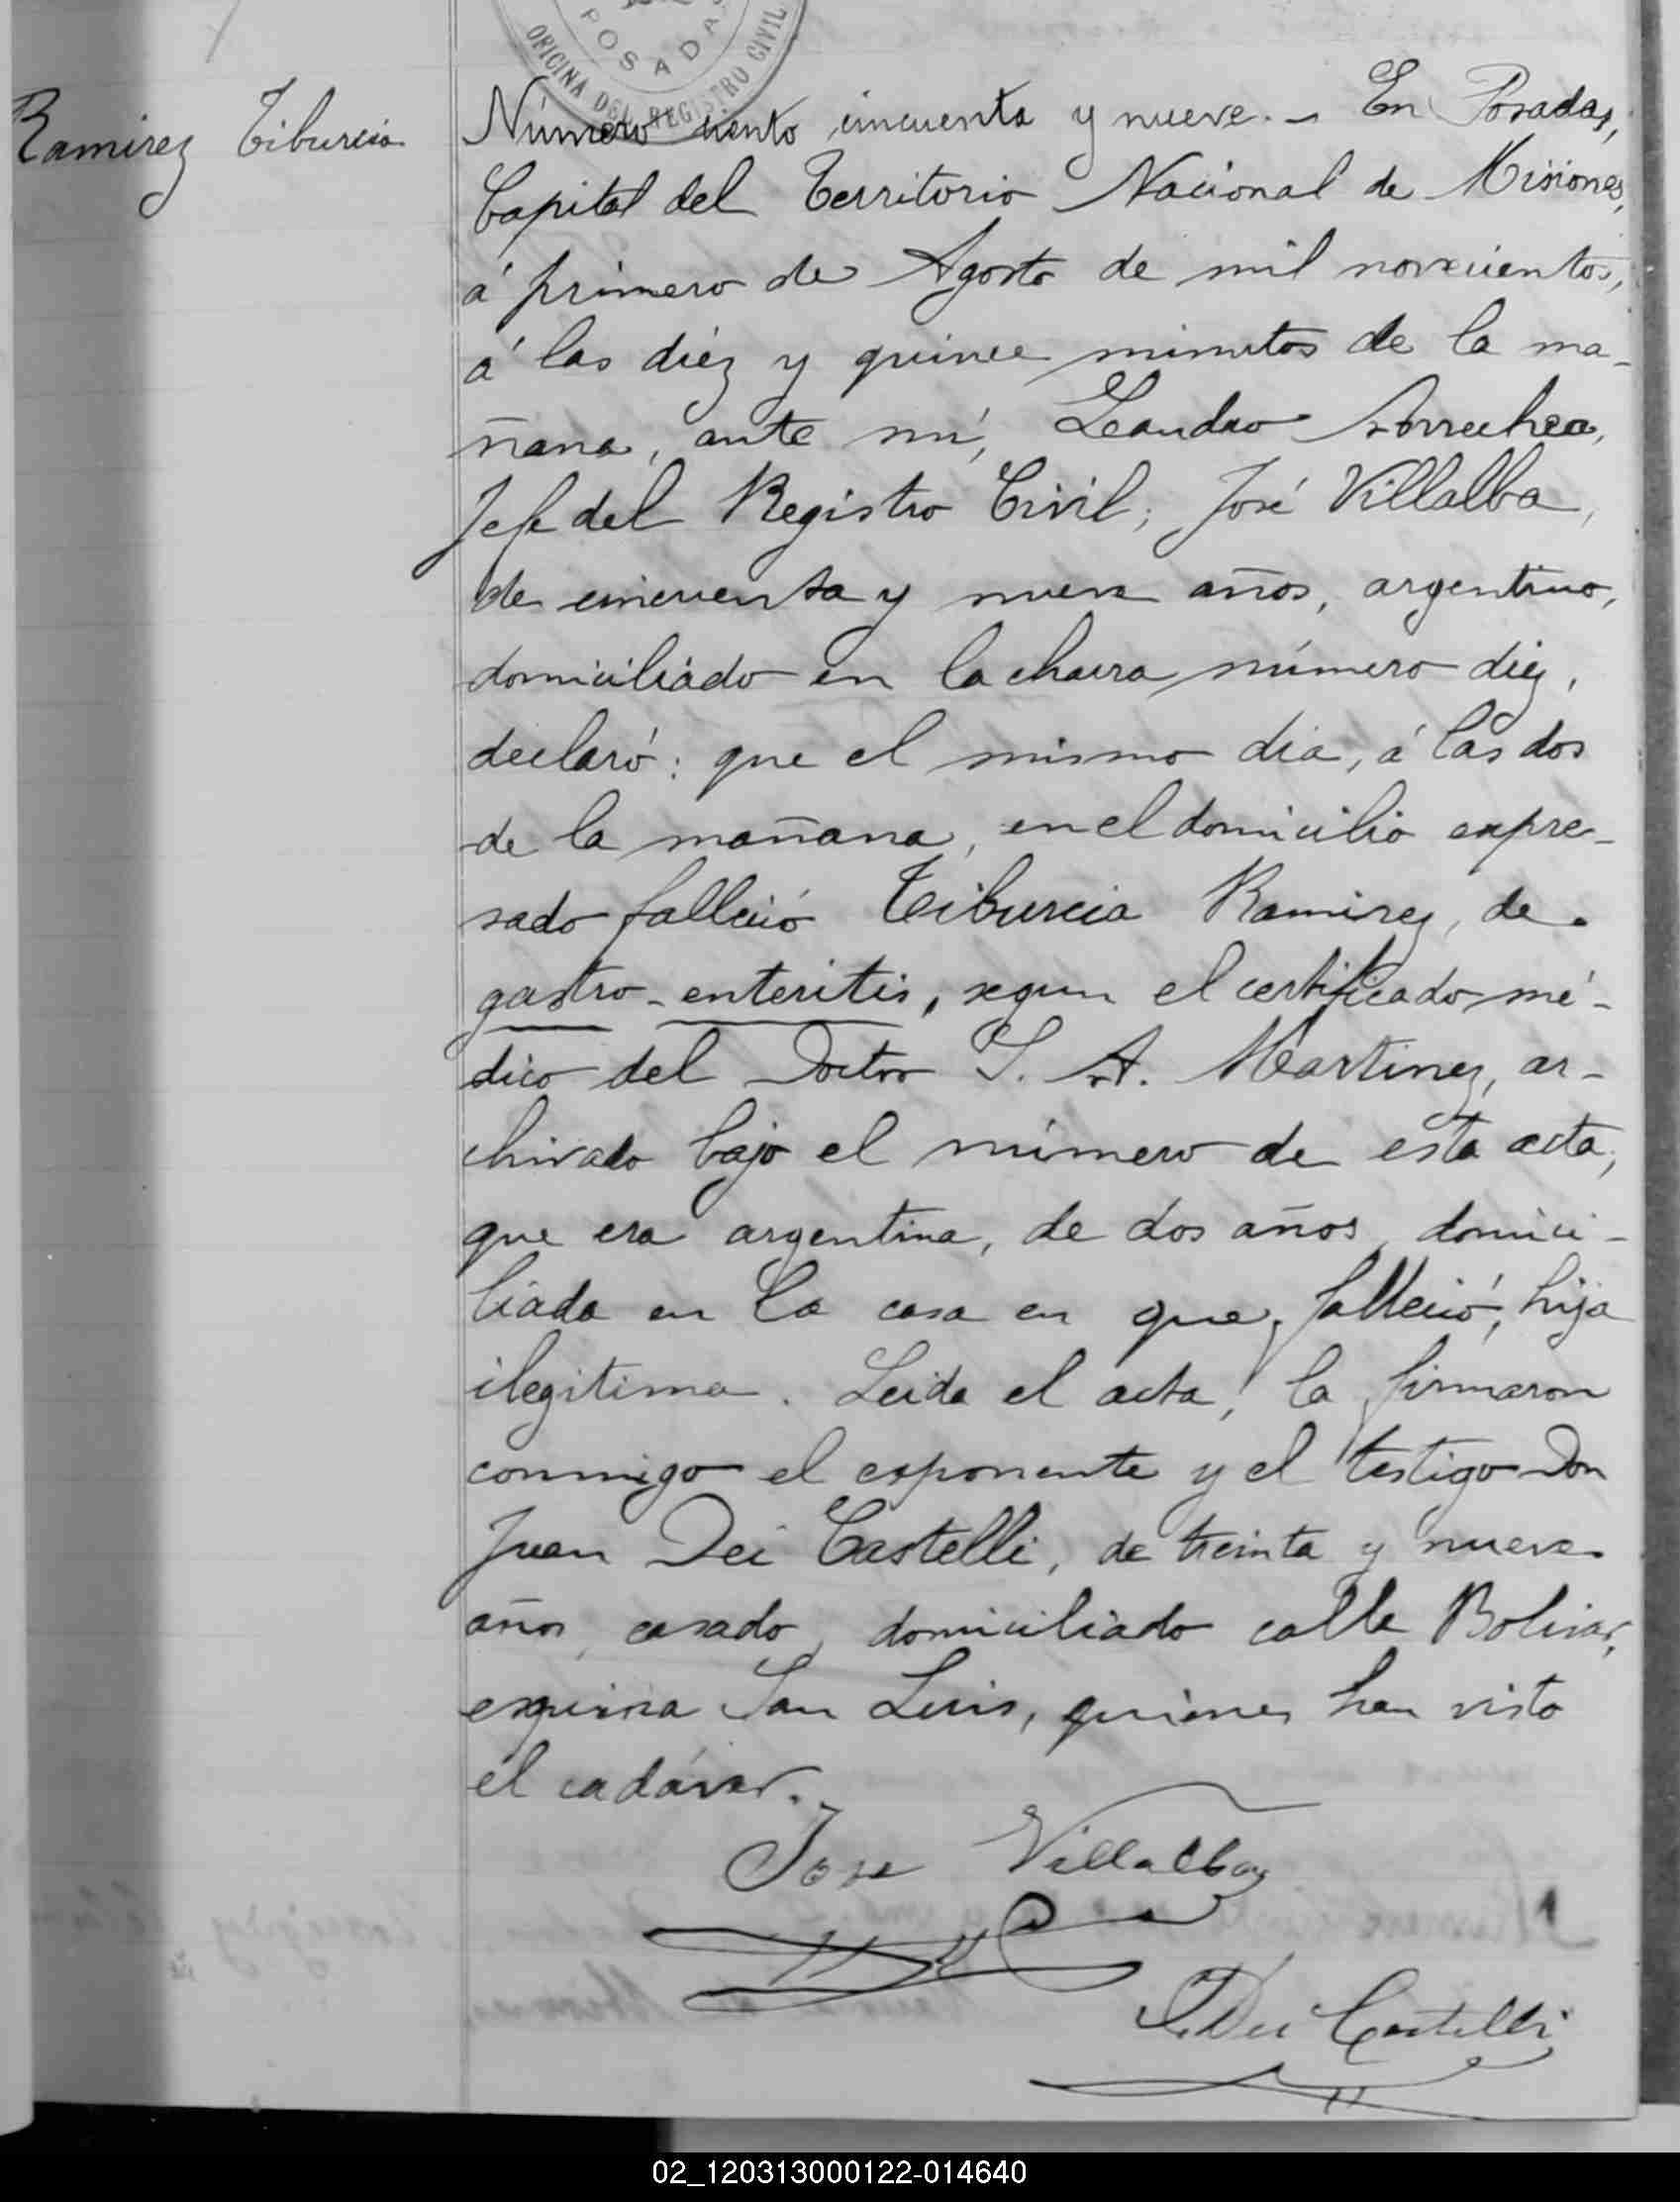 POSADAS
OFICINA DEL REGISTRO CIVIL
Ramirez Tiburcia
Número ciento cincuenta y nueve. - En Posadas,
Capital del Territorio Nacional de Misiones,
á primero de Agosto de mil novecientos,
á las diéz y quince minutos de la ma-
ñana, ante mí, Leandro Arrechea,
Jefe del Registro Civil; José Villalba,
de cincuenta y nueve años, argentino,
domiciliado en la chacra número diez,
declaró: que el mismo dia, á las dos
de la mañana, en el domicilio expre-
sado falleció Tiburcia Ramirez, de
gastro-enteritis, segun el certificado mé-
dico del Doctor T. A. Martinez, ar-
chivado bajo el número de esta acta;
que era argentina, de dos años, domici-
liada en la casa en que falleció; hija
ilegitima. Leida el acta, la firmaron
conmigo el exponente y el testigo Don
Juan Dei Castelli, de treinta y nueve
años, casado, domiciliado calle Bolivar,
esquina San Luis, quienes han visto
el cadáver.
Jose Villalba
J. Dei Castelli
02_120313000122-014640